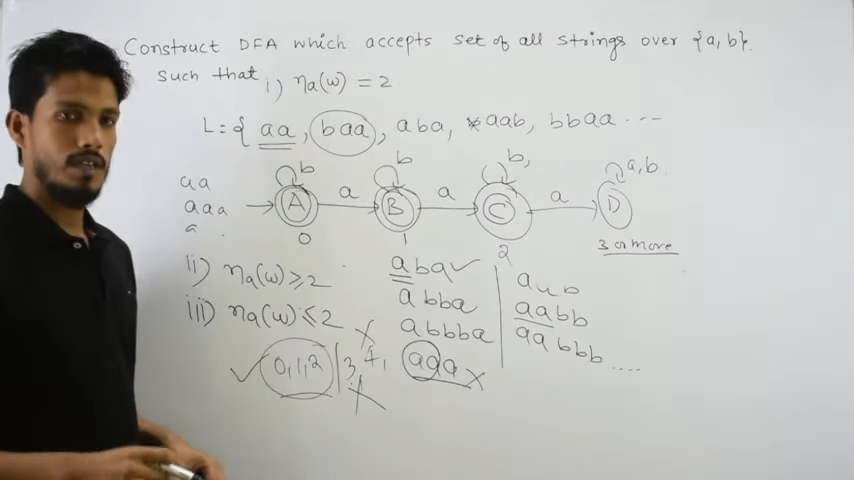 Construct DFA which accepts set of all strings over {a, b}.
such that i) na(w) = 2
L = { aa, baa, aba, aab, bbaa ....
b b b, a,b
aa
aaa
a
A a B a C a D
0 1 2 3 or more
ii) na(w) ≥ 2
iii) na(w) ≤ 2
✓ 0,1,2 | 3, 4,
aba ✓
abba
abbba
aaa X
aabb
aabbb ....